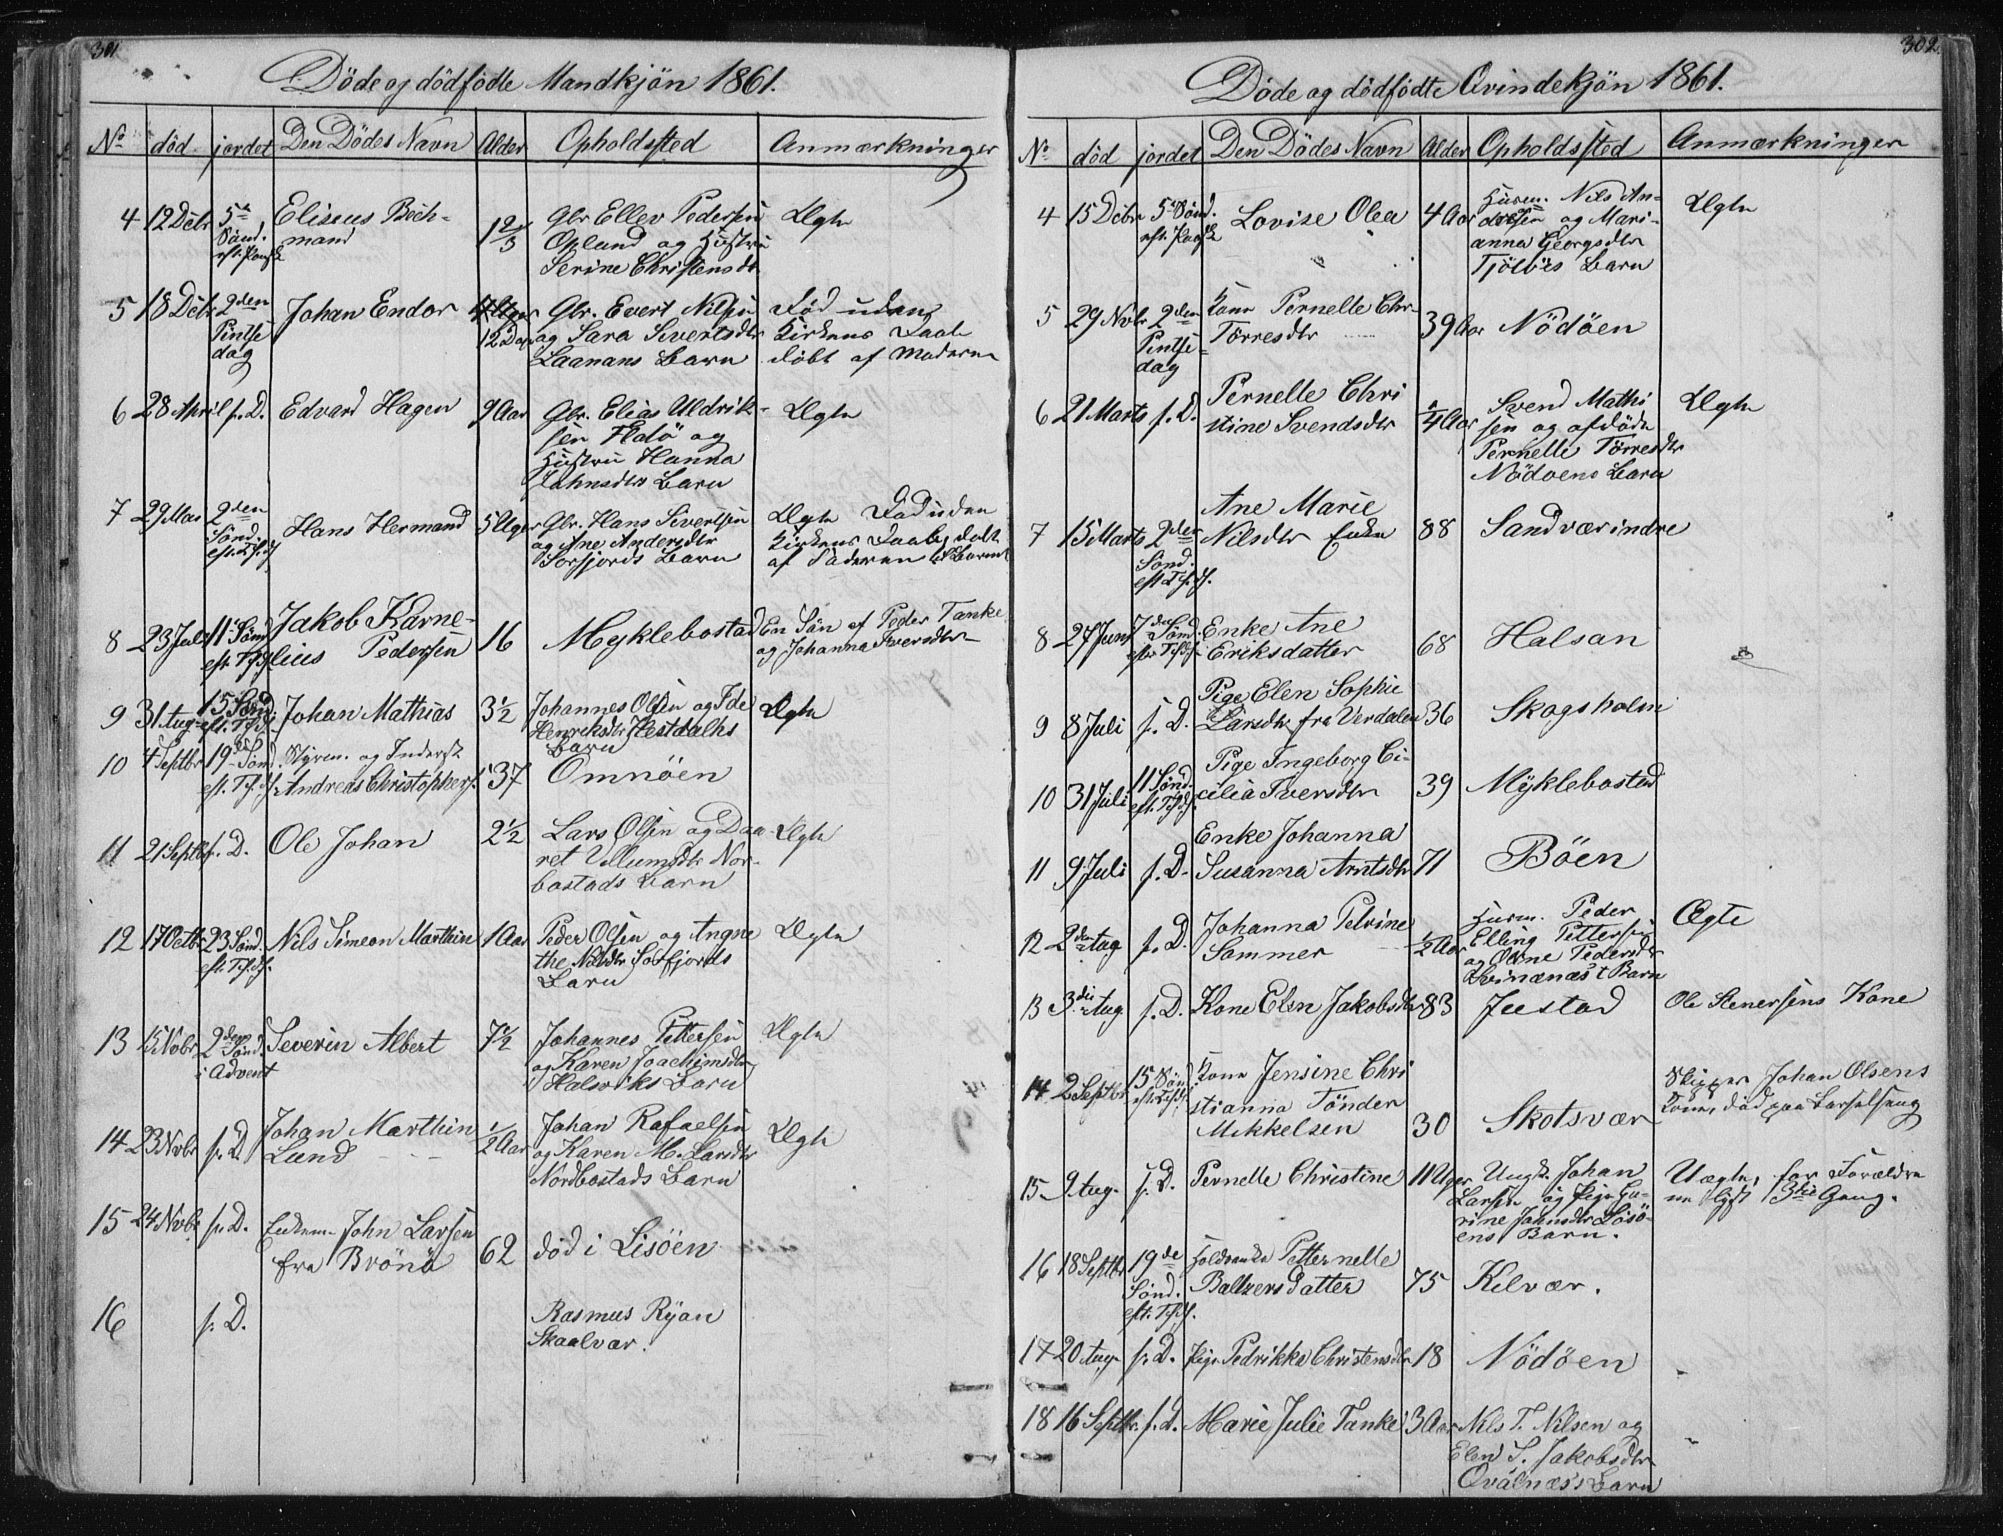 301
Döde og dödfödte Mandkjön 1861.
No död jordet Den Dödes Navn Alder Opholdssted Anmærkninger
4 12 Debr 5te Sönd. eft. Paaske Eliseus Bech-
mand 1 2/3 Gbr Ellev Pedersen
Opland og Hustru
Serine Christensdtr Ægte
5 18 Debr 2den Pintse dag Johan Endor 12 Dage Gbr. Evert Nilsen
og Sara Sivertsdtr
Laanans Barn Død uden
Kirkens Daab
døbt af Moderen
6 28 April s. D. Edvard Hagen 9 Aar Gbr. Elias Uldrik-
sen Flatö og
Hustru Hanna
Johnsdtrs Barn Ægte
7 29 Mai 2den Sönd. eft. Tfdf Hans Hermand 5 Uger Gbr. Hans Sivertsen
og Ane Andersdtr
Sörfjords Barn Ægte Död uden
Kirkens Daab, døbt
af Faderen til Barnet
8 23 Juli 11 Sönd eft. Tfdf Jakob Karne-
lius Pedersen 16 Myklebostad En Sön af Peder Tanke
og Johanna Iversdtr
9 31 Aug 15 Sönd eft. Tfdf Johan Mathias 3 1/2 Johannes Olsen og Ide
Henriksdtr Hestdalhs
Barn Ægte
10 4 Septbr 19de Sönd. eft. Tfdf Styrm. og Inderst
Andreas Christophers. 37 Omnöen
11 21 Septbr s. D. Ole Johan 2 1/2 Lars Olsen og Daa-
ret Villumsdtr Nor-
bostads Barn Ægte
12 17 Octbr 23 Sönd. eft. Tfdf. Nils Simeon Marthin 1 Aar Peder Olsen og Angne
the Nilsdtr Sörfjords
Barn Ægte
13 15 Novbr 2den Sönd. i Advent Severin Albert 7 1/2 Johannes Pettersen
og Karen Joachimsdtr
Halsviks Barn Ægte
14 23 Novbr s. D. Johan Marthin
Lund 1/2 Aar Johan Rafaelsen
og Karen M. Larsdtr
Nordbostads Barn Ægte
15 24 Novbr s. D. Enkem. John Larsen
fra Brönö 62 död i Lisöen
16 s. D. Rasmus Ryan
Skaalvær.
302
Döde og dödfödte Qvindekjön 1861.
No död jordet Den Dödes Navn Alder Opholdssted Anmærkninger
4 15 Debr 5 Sönd. eft. Paaske Lovise Olea 4 Aar Husm. Nils An-
dersen og Mari-
anna Georgsdtr
Tjölbies Barn Ægte
5 29 Novbr 2den Pintse dag Kone Pernelle Chr.
Törresdtr 39 Aar Nödöen
6 21 Marts s. D. Pernelle Chri
stine Svendsdtr 1/4 Aar Svend Mathi
sen og afdöde
Pernelle Törresdtr
Nödöens Barn Ægte
7 15 Marts 2den Sönd. eft Tfdf. Ane Marie
Nilsdtr Enke 88 Sandvær indre
8 27 Juni 7de Sönd. efter Tfdf. Enke Ane
Eriksdatter 68 Halsan
9 8 Juli s. D. Pige Elen Sophie
Larsdtr fra Verdalen 36 Skogsholm
10 31 Juli 11 Sönd. eft Tfdf. Pige Ingeborg Ci-
cilia Iversdtr 39 Myklebostad
11 9 Juli s. D. Enke Johanna
Susanna Arntsdtr 71 Böen
12 2den Aug s. D. Johanna Petrine
Sommer 1/2 Aar Husm. Peder
Elling Pettersen
og Oline Pedersdtr
Barn Ægte
13 3die Aug s. D. Kone Elen Jakobsdtr 83 Justad Ole Stenersens Kone
14 2 Septbr 15 Sönd eft. Tfdf Kone Jensine Chri
stianna Tönder
Mikkelsen 30 Skotsvær Skipper Johan Olsens
Kone, död paa Barselseng
15 9 Aug. s. D. Pernelle Christine 11 Uger Ungk. Johan
Larsen og Pige Gu-
rine Johnsdtr Lisö-
ens Barn. Uægte, for Forældre
ne Lgft 3die Gang.
16 18 Septbr 19de Sönd. eft. Tfdf. Petternelle
Baltzersdatter 75 Kilvær.
17 20 Aug s. D. Pige Pedrikke Christensdtr 18 Nödöen
18 16 Septbr. s. D. Marie Julie Tanke 3 Aar Nils T. Nilsen og
Elen S. Jakobsdtr
Qvalnæss Barn